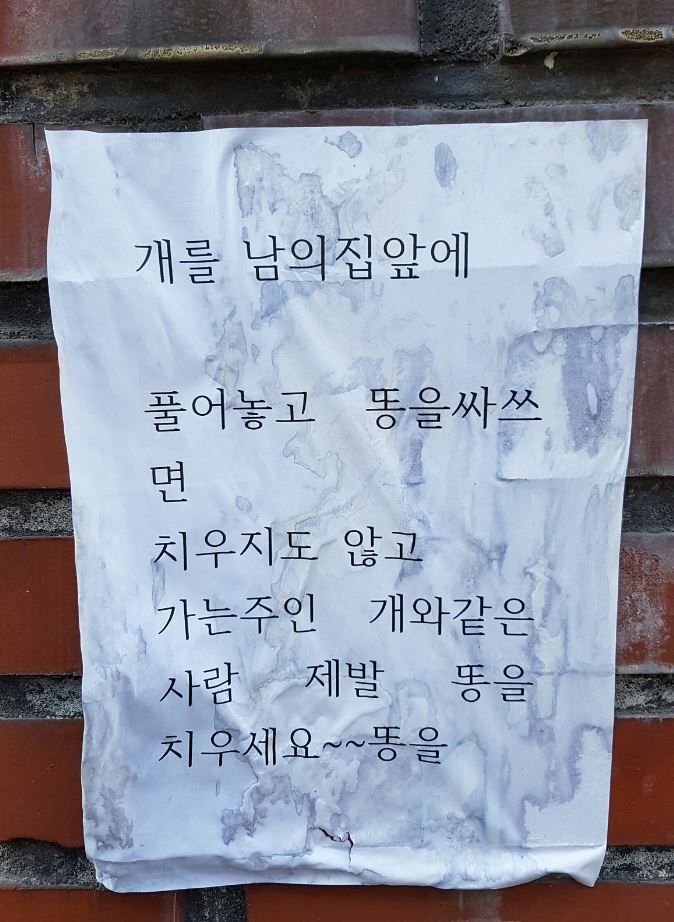 개를 남의집앞에
풀어놓고 똥을싸쓰
면
치우지도 않고
가는주인 개와같은
사람 제발 똥을
치우세요~~똥을